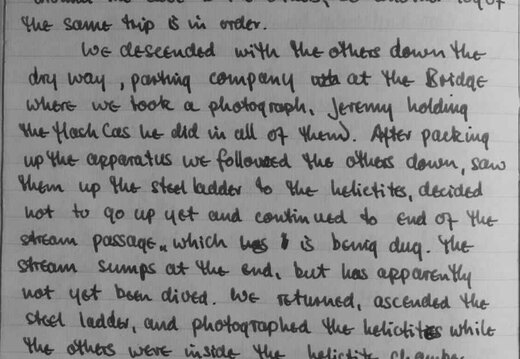 the same trip is in order.
We descended with the others down the
dry way, parting company at the Bridge
where we took a photograph, Jeremy holding
the flash (as he did in all of them). After packing
up the apparatus we followed the others down, saw
them up the steel ladder to the helictites, decided
not to go up yet and continued to end of the
stream passage, which is being dug. The
stream sumps at the end, but has apparently
not yet been dived. We returned, ascended the
steel ladder, and photographed the helictites while
the others were inside the helictite chamber